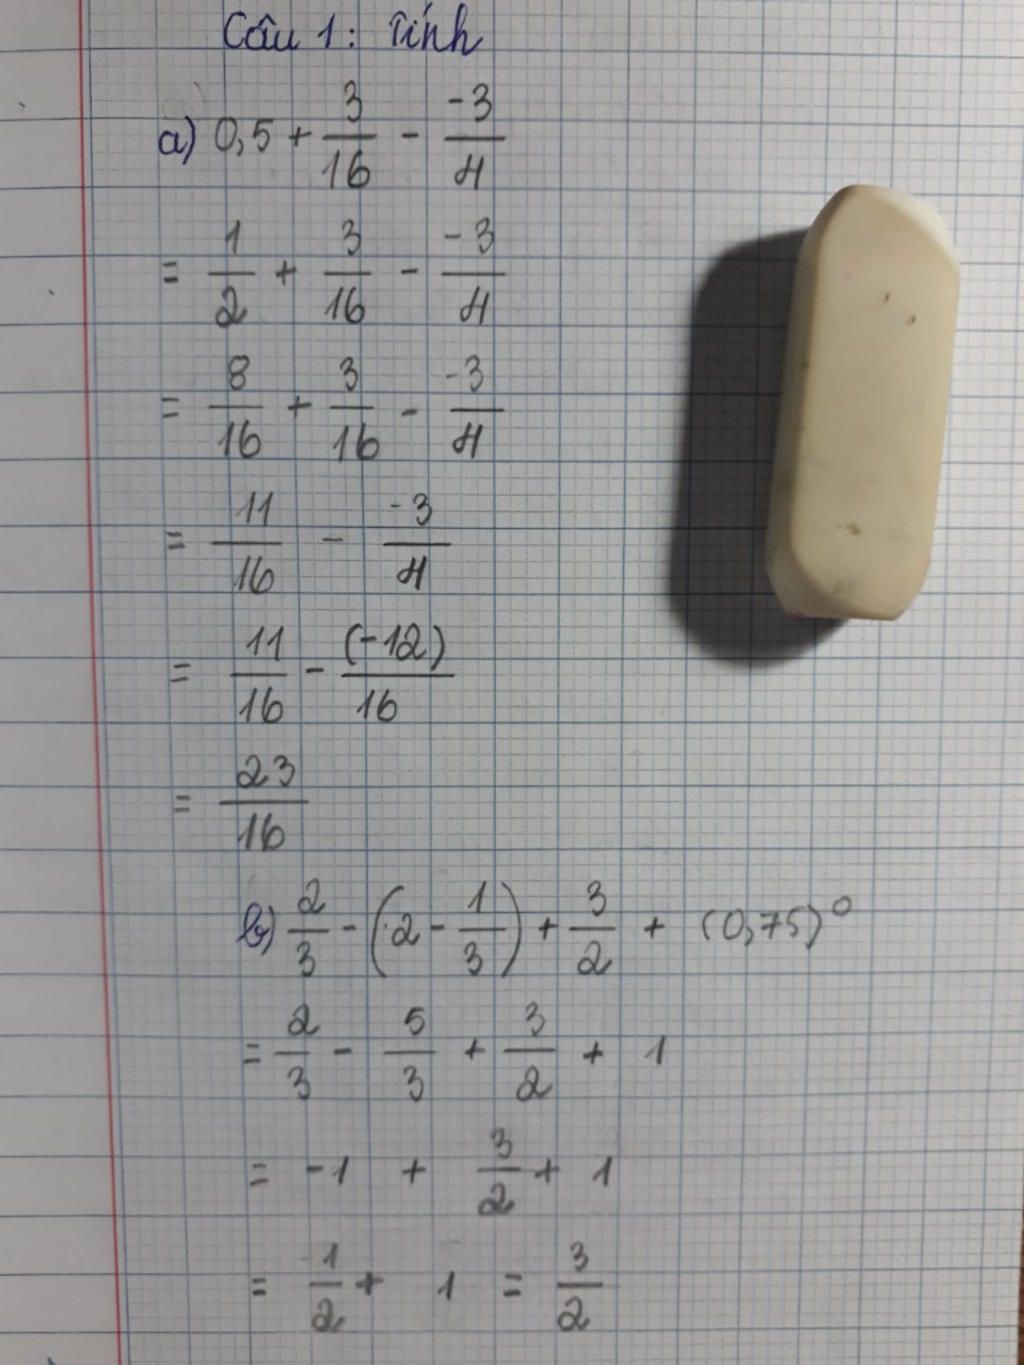 Câu 1: Tính
a) 0,5 + 3/16 - -3/4
= 1/2 + 3/16 - -3/4
= 8/16 + 3/16 - -3/4
= 11/16 - -3/4
= 11/16 - (-12)/16
= 23/16
b) 2/3 - (2 - 1/3) + 3/2 + (0,75)⁰
= 2/3 - 5/3 + 3/2 + 1
= -1 + 3/2 + 1
= 1/2 + 1 = 3/2